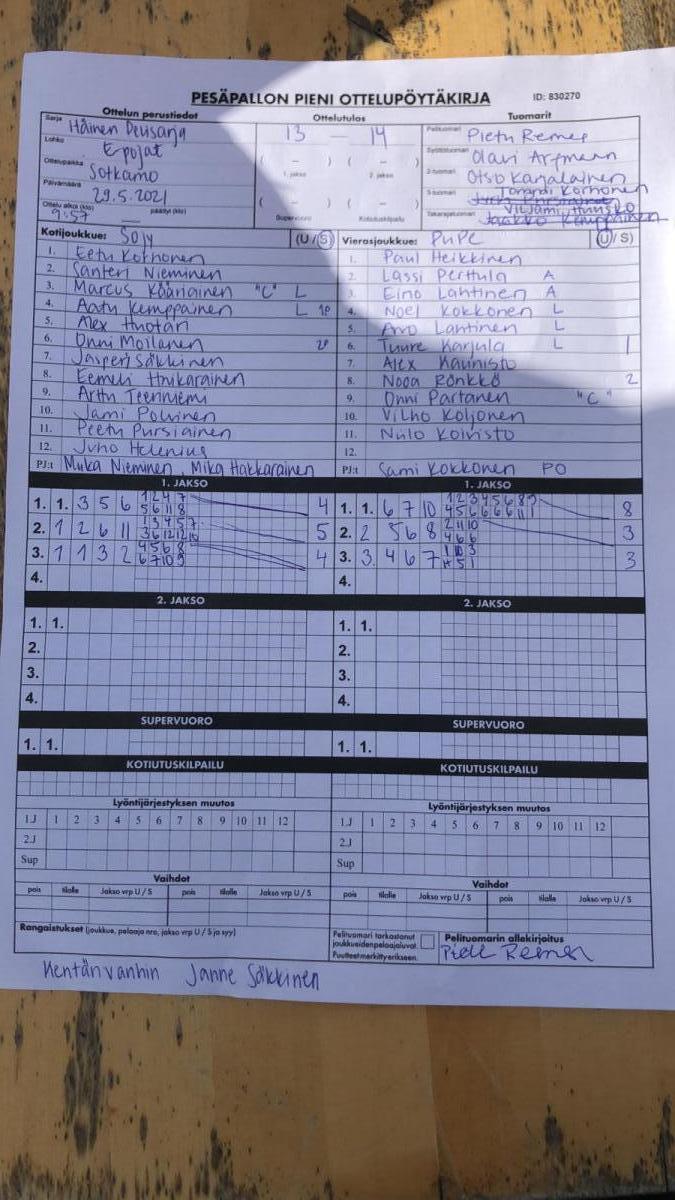 PESÄPALLON PIENI OTTELUPÖYTÄKIRJA ID: 830270
Ottelun perustiedot Ottelutulos Tuomarit
Sarja Hämen Deusarja 13 — 14 Pelituomari Pietu Remes
Lohko E pojat Syöttötuomari Olavi
Ottelupaikka Sotkamo ( – ) ( – ) 2-tuomari Otso Karjalainen
1. jakso 2. jakso
Päivämäärä 29.5.2021 3-tuomari Tomppi Korhonen
Ottelu alkoi (klo) 9:57 päättyi (klo) ( – ) ( – ) Takarajatuomari Viljami
Supervuoro Kotiutuskilpailu
Kotijoukkue: SoJy (U/S) Vierasjoukkue: PuPe (U/S)
1. Eetu Korhonen 1. Paul Heikkinen
2. Santeri Nieminen 2. Lassi Perttula A
3. Marcus Kääriäinen "C" L 3. Eino Lahtinen A
4. Aatu Kemppainen L 1P 4. Noel Kokkonen L
5. Alex Huotari 5. Arvo Lahtinen L
6. Onni Moilanen 2P 6. Tuure Karjula L 1
7. Jasperi Säkkinen 7. Alex Kaunisto
8. Eemeli Hakkarainen 8. Nooa Rönkkö 2
9. Arttu Teerimemi 9. Onni Partanen "C"
10. Jami Polvinen 10. Vilho Koljonen
11. Peetu Pursiainen 11. Niilo Koivisto
12. Juho Helenius 12.
PJ:t Miika Nieminen, Mika Hakkarainen PJ:t Sami Kokkonen PO
1. JAKSO 1. JAKSO
1. 1. 3 5 6 1 2 4 7 4 1. 1. 6 7 10 1 2 3 4 5 6 8 9 8
5 6 11 8 4 5 6 6 6 6 11 1
2. 1 2 6 11 1 3 4 5 7 5 2. 2 5 6 8 2 11 10 3
3 6 12 12 10 4 6 6
3. 1 1 3 2 4 5 6 8 4 3. 3 4 6 7 1 10 3 3
6 7 10 9
4. 4.
2. JAKSO 2. JAKSO
1. 1. 1. 1.
2. 2.
3. 3.
4. 4.
SUPERVUORO SUPERVUORO
1. 1. 1. 1.
KOTIUTUSKILPAILU KOTIUTUSKILPAILU
Lyöntijärjestyksen muutos Lyöntijärjestyksen muutos
1.J 1 2 3 4 5 6 7 8 9 10 11 12 1.J 1 2 3 4 5 6 7 8 9 10 11 12
2.J 2.J
Sup Sup
Vaihdot Vaihdot
pois tilalle Jakso vrp U / S pois tilalle Jakso vrp U / S pois tilalle Jakso vrp U / S pois tilalle Jakso vrp U / S
Rangaistukset (joukkue, pelaaja nro, jakso vrp U / S ja syy) Pelituomari tarkastanut Pelituomarin allekirjoitus
joukkueiden pelaajaluvat. Pietu Remes
Puutteet merkitty erikseen.
Kentänvanhin Janne Säkkinen